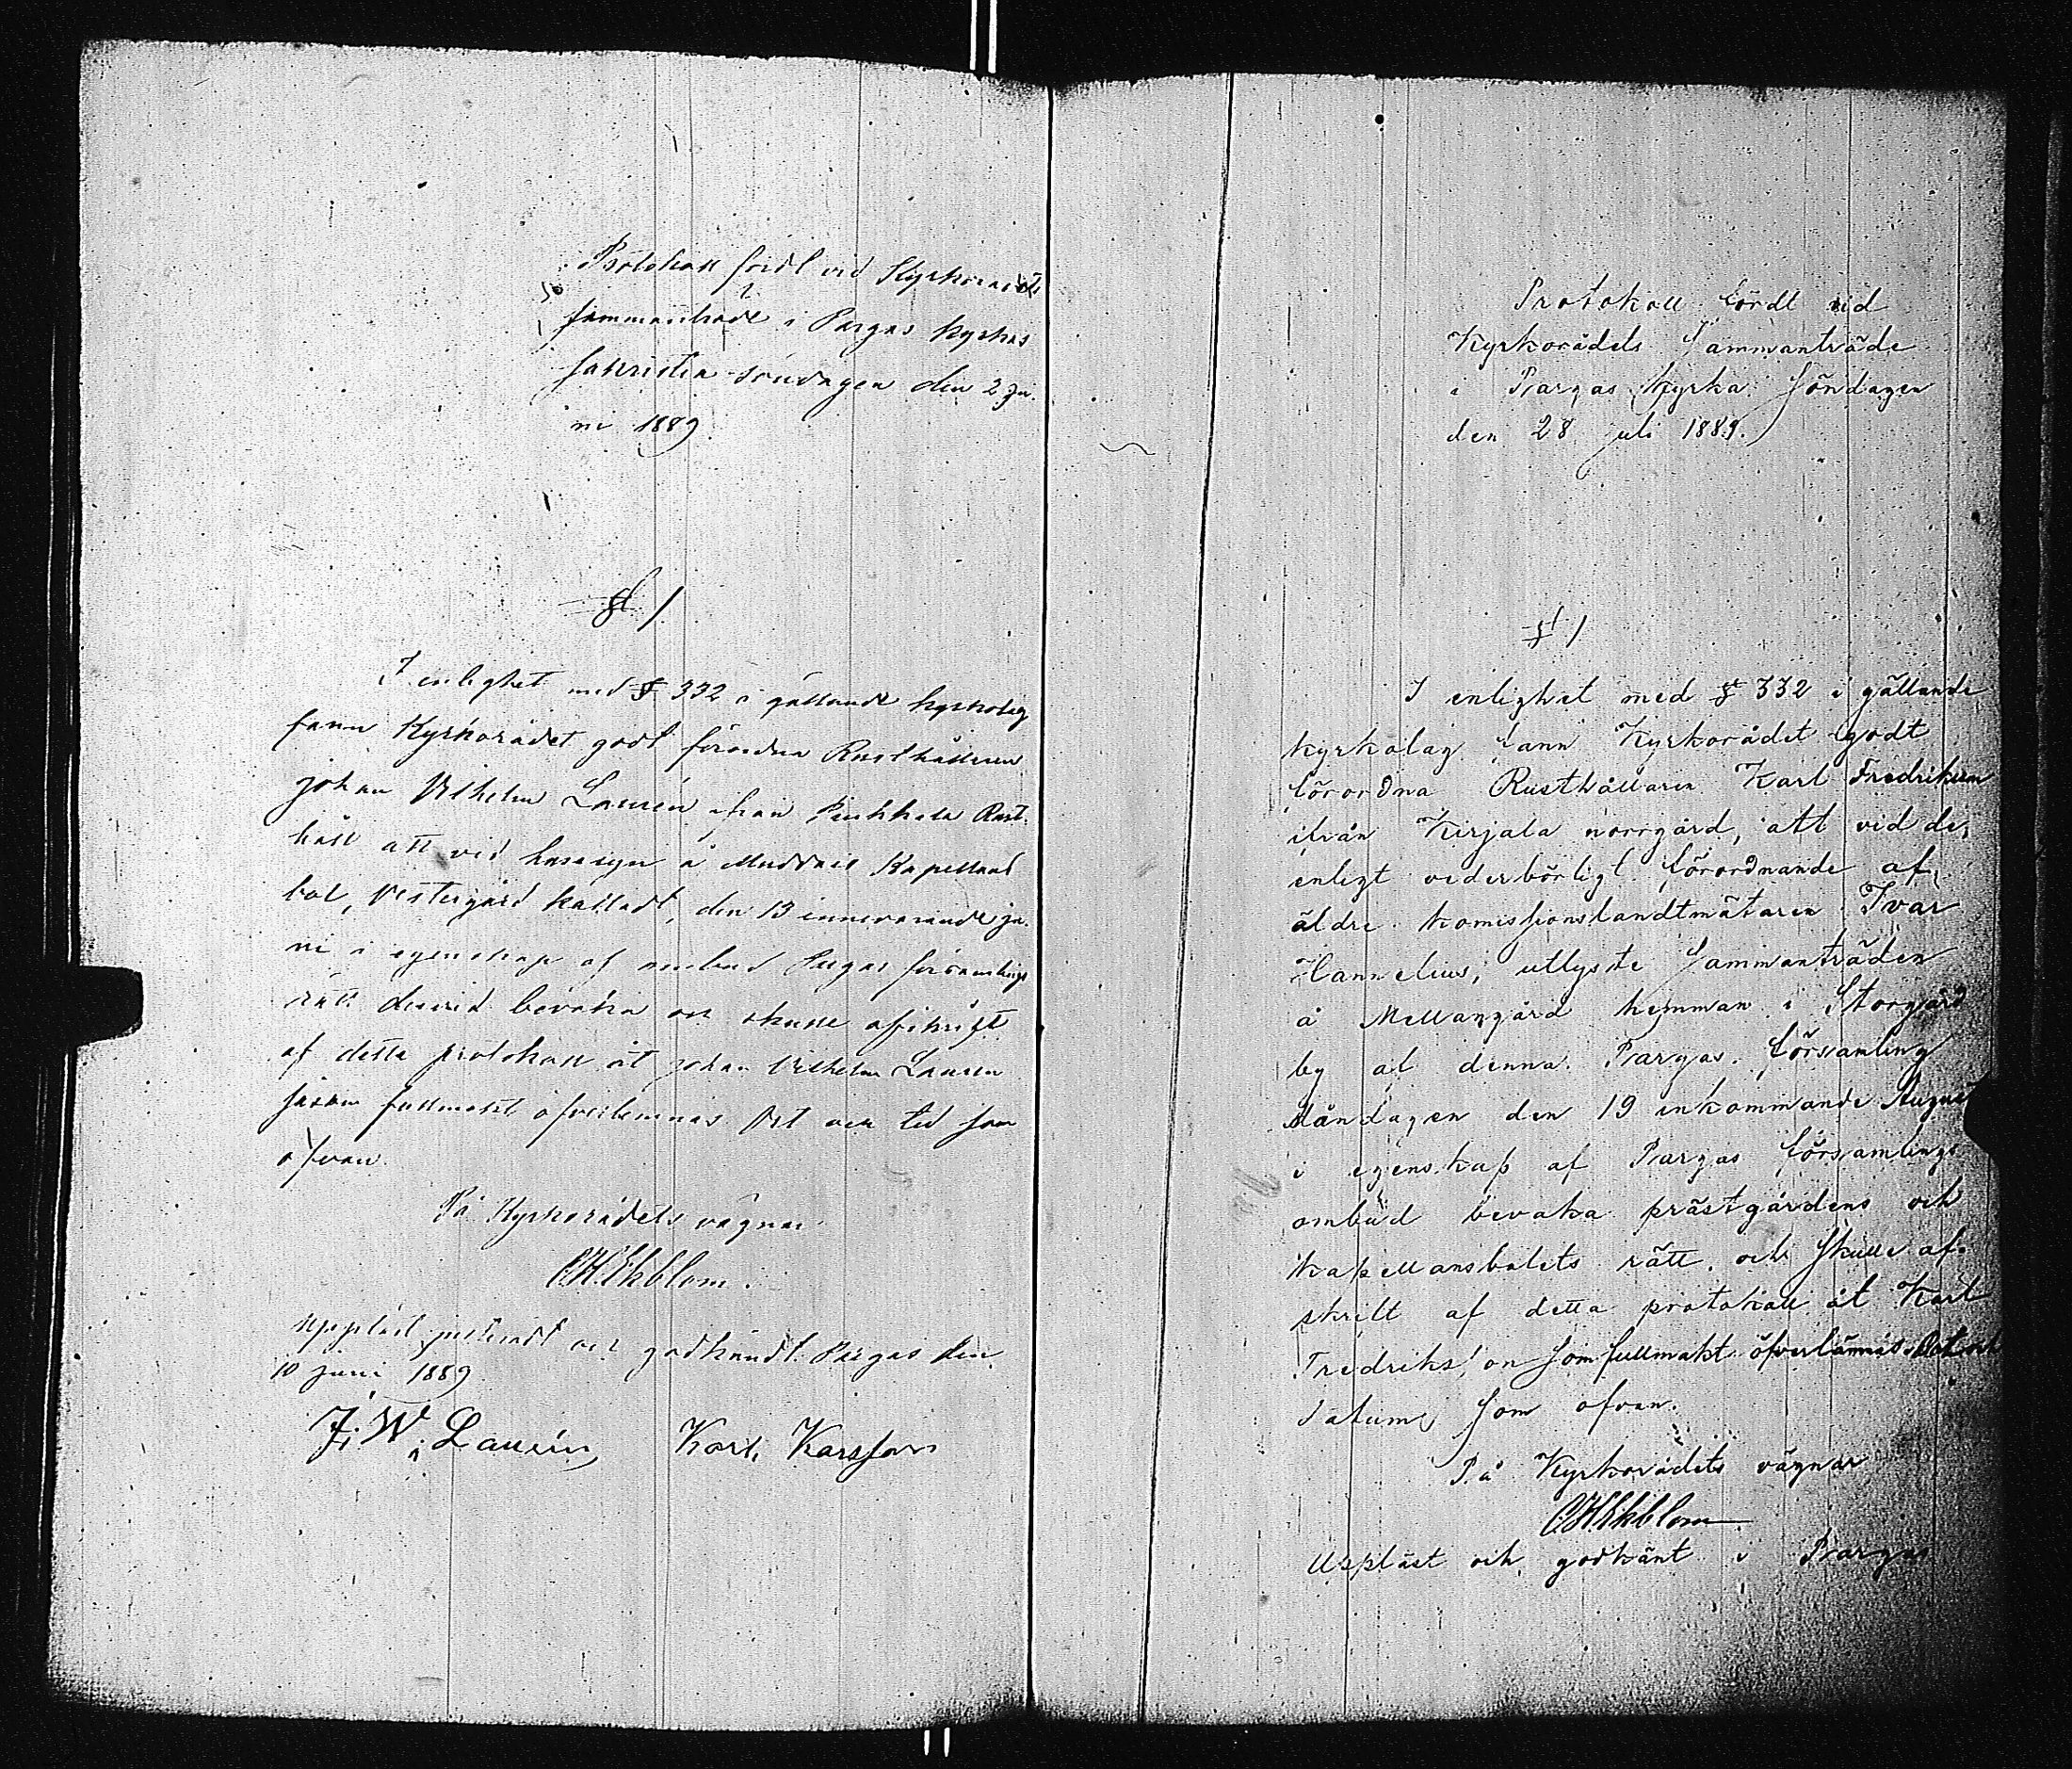 Protokoll fördt vid Kyrkorådets
sammanträde i Pargas kyrkas
sakristia söndagen den 2 Ju-
ni 1889
§ 1
I enlighet med § 332 i gällande kyrkolag
fann Kyrkorådet godt förordna Rusthållaren
Johan Vilhelm Laurén ifrån Rast-
håll att vid husesyn å Muddais Kapellans
bol, Vestergård kalladt, den 13 innevarande ju-
ni i egenskap af ombud Pargas församlings
rätt dervid bevaka och skulle afskrift
af detta protokoll åt Johan Vilhelm Lauren
såsom fullmakt öfverlemnas Ort och tid som
ofvan.
På Kyrkorådets vägnar
C.H.Ekblom.
Uppläst justeradt och godkändt. Pargas den
10 juni 1889
J. W. Laurén Karl Karlsson
Protokoll fördt vid
Kyrkorådets Sammanträde
i Pargas Kyrka Söndagen
den 28 juli 1889.
§ 1
I enlighet med § 332 i gällande
kyrkolag fann Kyrkorådet godt
förordna Rusthållaren Karl Fredriksson
ifrån Kirjala norrgård, att vid de,
enligt vederbörligt förordnande af
äldre komissionslandtmätaren Ivar
Hannelius, utlyste Sammanträden
å Mellangård hemman i Storgård
by af denna Pargas församling
Måndagen den 19 inkommande August
i egenskap af Pargas församlings
ombud bevaka prästgårdens och
Kapellansbolets rätt, och skulle af-
skrift af detta protokoll åt Karl
Fredriksson som fullmakt öfverlämnas. Ort och
datum som ofvan.
På Kyrkorådets vägnar
C.H.Ekblom
Uppläst och godkänt i Pargas